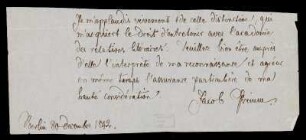 Je m'applaudis vivement de cette distinction, qui
m'acquiert le droit d'entretenir avec l'académie
des relations littéraires. Veuillez bien être auprès
d'elle l'interprète de ma reconnaissance et agréer
en même temps l'assurance particulière de ma
haute considération.
Jacob Grimm
Berlin décembre